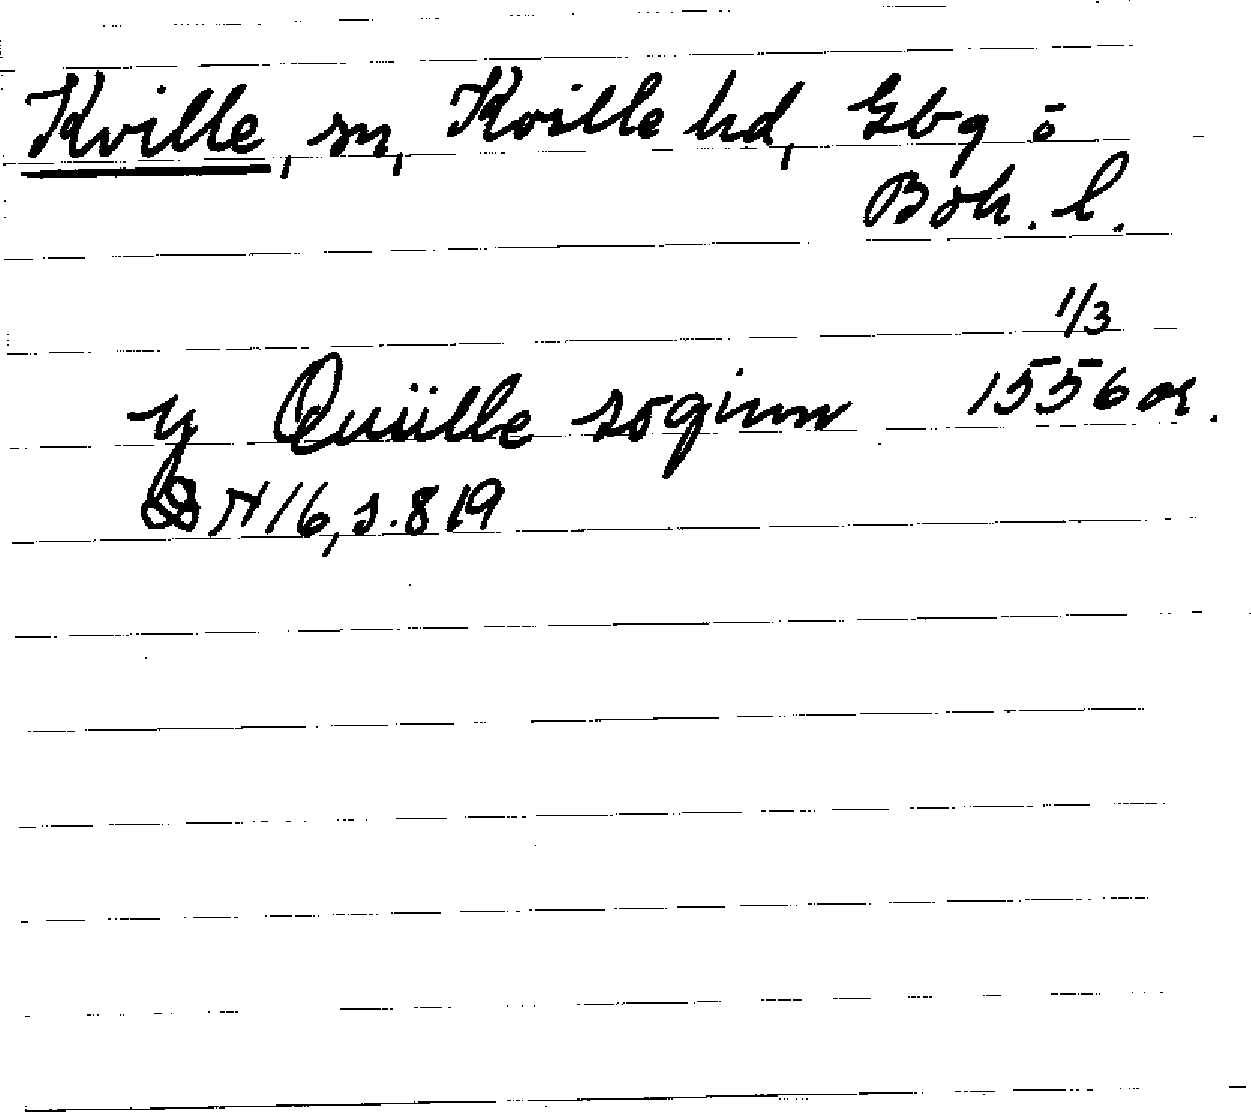 Kville, sn, Kville hd, Gbg o
Boh. l.
1/3
y Quille soginn 1556 or.
DN 16, s. 819